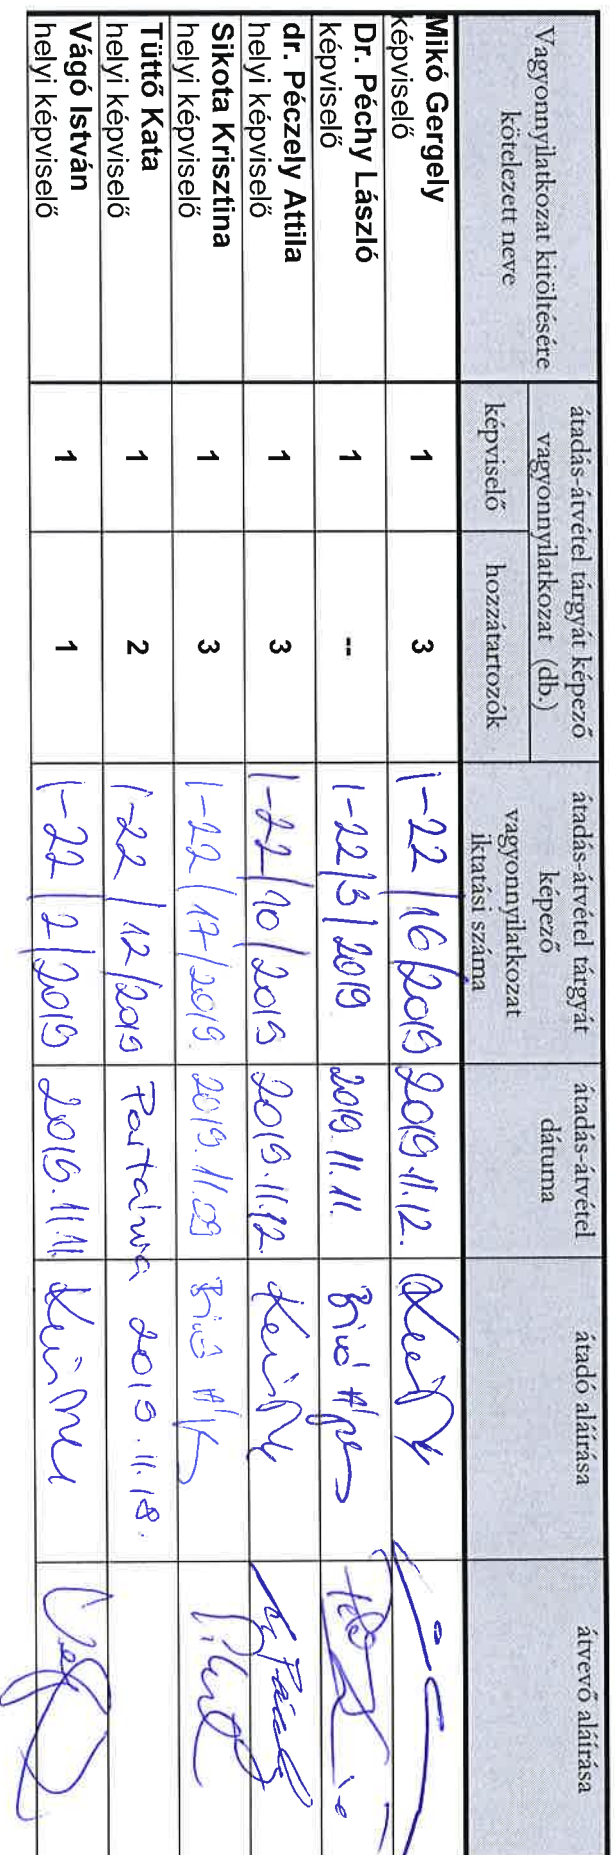 Vagyonnyilatkozat kitöltésére
kötelezett neve
átadás-átvétel tárgyát képező
vagyonnyilatkozat (db.)
képviselő
hozzátartozók
átadás-átvétel tárgyát
képező
vagyonnyilatkozat
iktatási száma
átadás-átvétel
dátuma
átadó aláírása
átvevő aláírása
Mikó Gergely
képviselő
1
3
1-22/16/2019
2019.11.12.
Dr. Péchy László
képviselő
1
--
1-22/3/2019
2019.11.11.
dr. Péczely Attila
helyi képviselő
1
3
1-22/10/2019
2019.11.12
Sikota Krisztina
helyi képviselő
1
3
1-22/17/2019.
2019.11.09
Tüttő Kata
helyi képviselő
1
2
1-22/12/2019
Postázva 2019.11.18.
Vágó István
helyi képviselő
1
1
1-22/2/2019
2019.11.11.